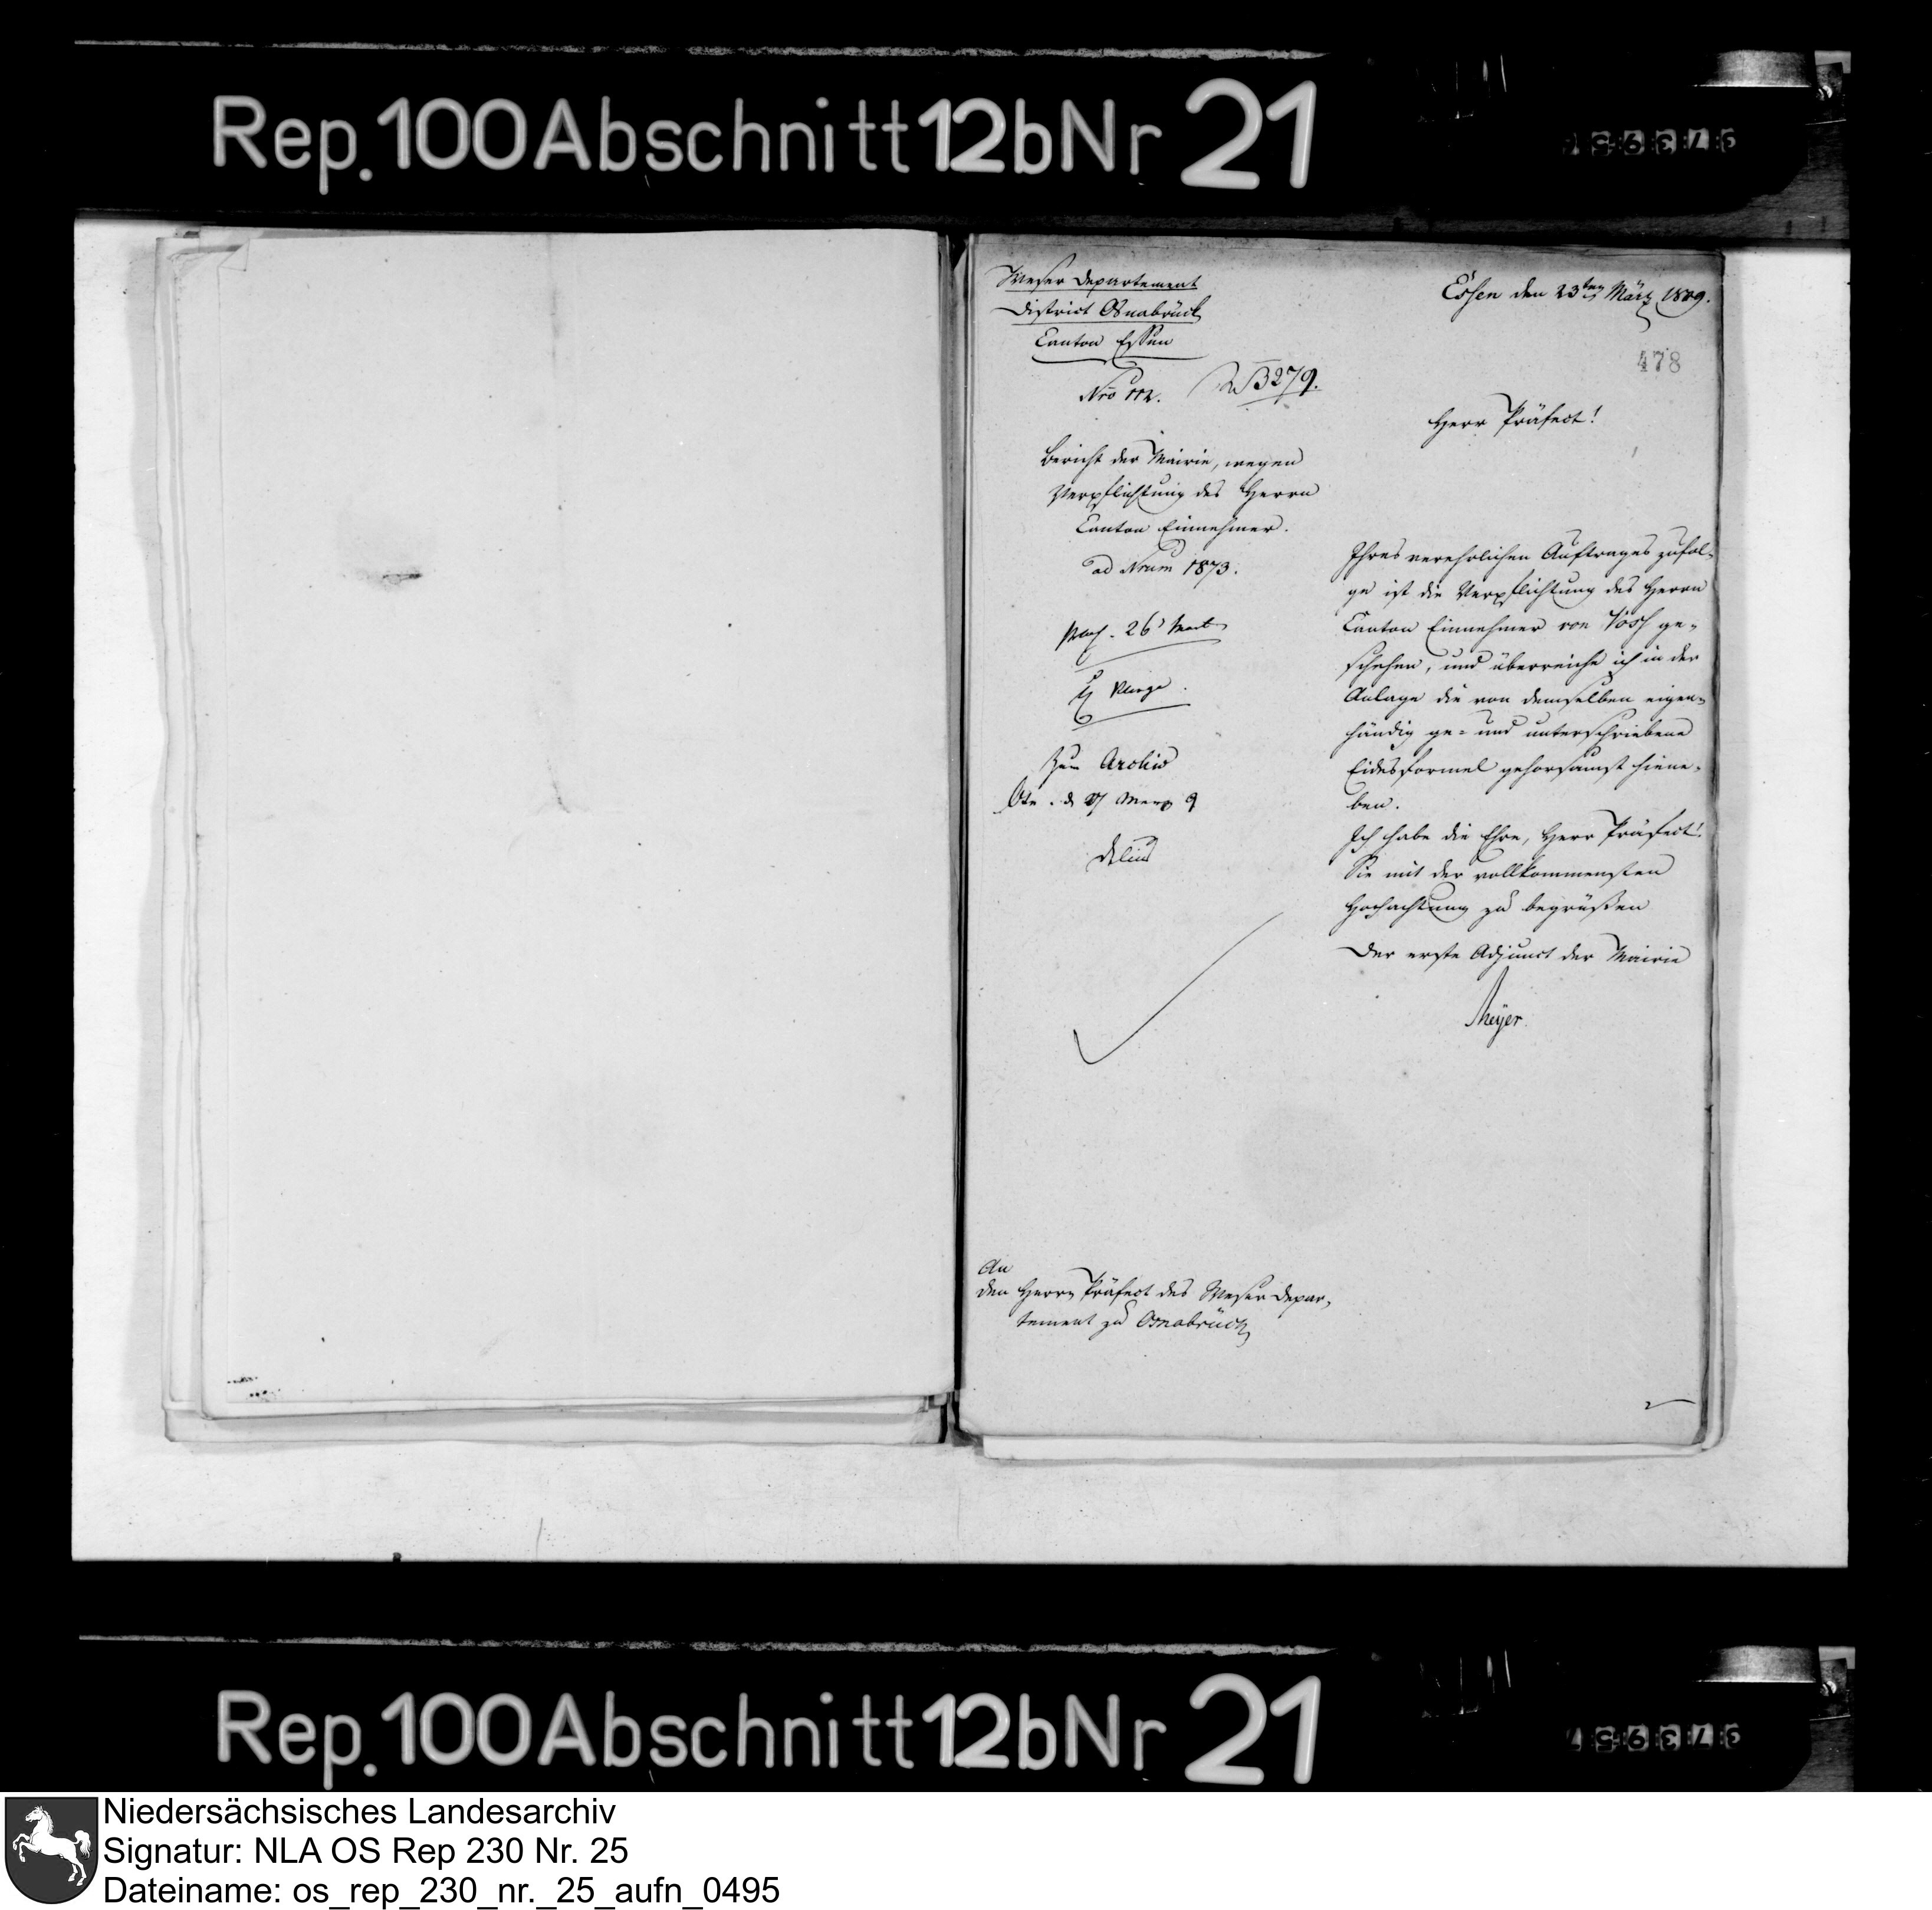 Rep. 100 Abschnitt 12b Nr 21
Weser Departement
District Osnabrück
Canton Essen
Nro 112.
3279.
Essen den 23ten März 1809.
478
Herr Präfect!
Bericht der Mairie, wegen
Verpflichtung des Herrn
Canton Einnehmer.
ad Num 1873.
26
Zum Archiv
Delius
Ihres verehrlichen Auftrages zufol-
ge ist die Verpflichtung des Herrn
Canton Einnehmer von Voss ge-
schehen, und überreiche ich in der
Anlage die von demselben eigen-
händig ge- und unterschriebene
Eidesformel gehorsamst hiene-
ben.
Ich habe die Ehre, Herr Präfect!
Sie mit der vollkommensten
Hochachtung zu begrüßen
Der erste Adjunct der Mairie
Meyer.
An
den Herrn Präfect des Weser Depar-
tement zu Osnabrück
Rep. 100 Abschnitt 12b Nr 21
Niedersächsisches Landesarchiv
Signatur: NLA OS Rep 230 Nr. 25
Dateiname: os_rep_230_nr._25_aufn_0495